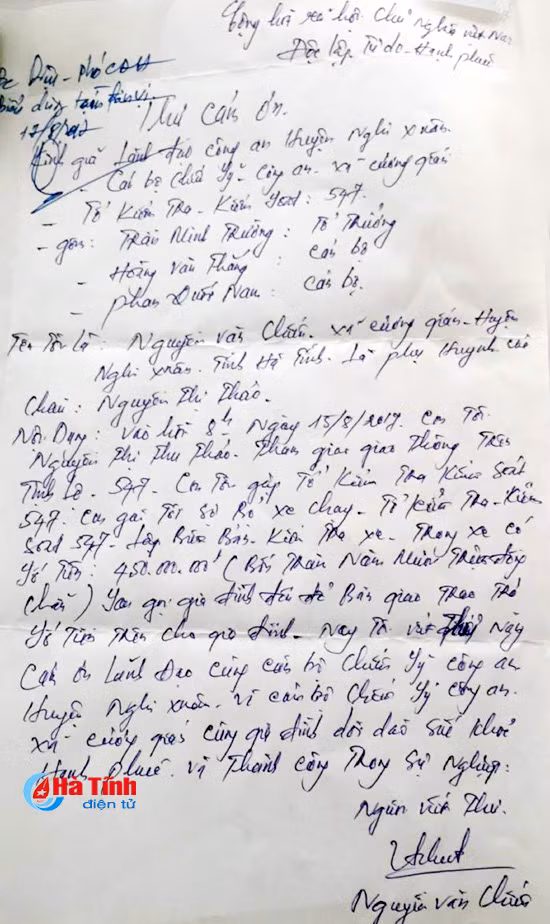 Cộng hòa xã hội Chủ Nghĩa Việt Nam
Độc lập Tự do - Hạnh phúc
phó CAH
biểu dương
Thư cảm ơn.
Kính gửi Lãnh đạo công an Huyện Nghi xuân.
- Cán bộ chiến sỹ - công an - xã cương gián
- Tổ Kiểm Tra - Kiểm soát : 547.
- gồm : Trần Minh Trường : Tổ Trưởng
- Hoàng văn Thắng : cán bộ
- phan Đười Nam : cán bộ.
Tên Tôi là : Nguyễn văn Chiến. xã cương gián - Huyện
Nghi xuân. Tỉnh Hà Tĩnh. Là phụ Huynh của
cháu : Nguyễn Thị Thảo.
Nội Dung : vào hồi 8h Ngày 15/8/2017. con Tôi
Nguyễn Thị Thu Thảo. Tham gia giao Thông Trên
Tỉnh Lộ. 547. Con Tôi gặp Tổ Kiểm Tra Kiểm Soát
547. Con gái Tôi sợ Bỏ xe chạy. Tổ kiểm Tra - Kiểm
soát 547. Lập Biên Bản - Kiểm Tra xe. Trong xe có
số Tiền : 450.000.000đ ( Bốn Trăm Năm Mươi Triệu đồng
chẵn ) sau gọi gia đình đến để Bàn giao Trao Trả
số Tiền Trên cho gia đình. Nay Tôi viết Thư Này
Cảm ơn Lãnh Đạo cùng cán bộ Chiến sỹ công an
Huyện Nghi xuân. và cán bộ Chiến sỹ công an.
xã cương gián cùng gia đình dồi dào sức khoẻ
Hạnh Phúc. và Thành công Trong sự Nghiệp.
Hà Tĩnh
điện tử
Người viết Thư.
Nguyễn văn Chiến